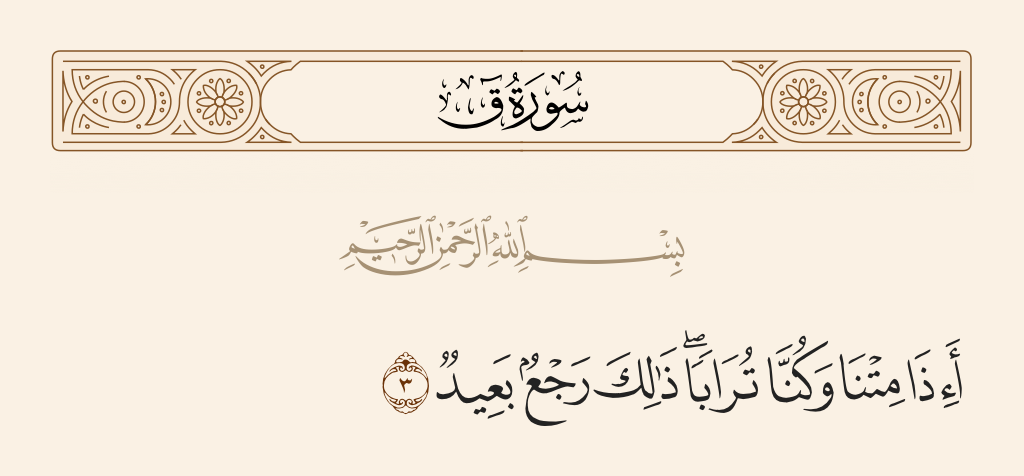 سُورَةُ قٓ
بِسْمِ ٱللَّهِ ٱلرَّحْمَٰنِ ٱلرَّحِيمِ
أَءِذَا مِتْنَا وَكُنَّا تُرَابًا ۖ ذَٰلِكَ رَجْعٌۢ بَعِيدٌ ٣